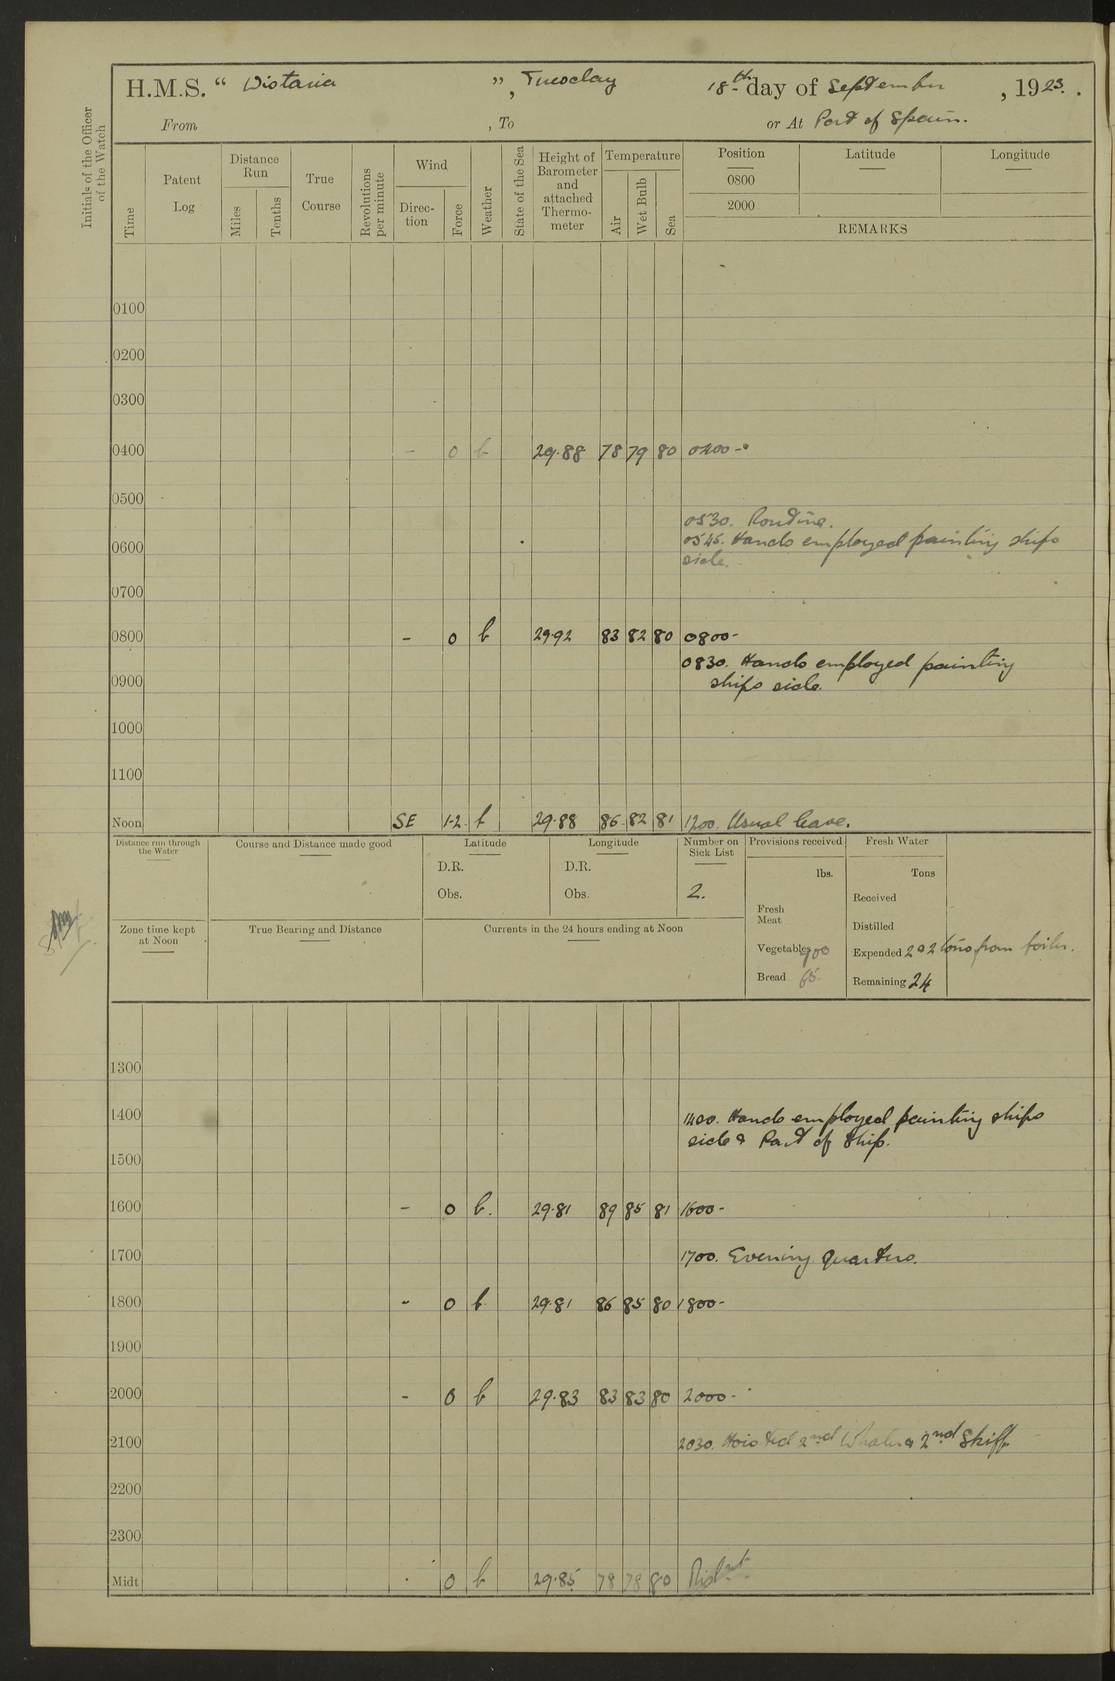 H.M.S. “ Wistaria ”, Tuesday 18th day of September, 1923.
From , To or At Port of Spain.
Initials of the Officer of the Watch
Time
Patent Log
Distance Run
Miles
Tenths
True Course
Revolutions per minute
Wind
Direction
Force
Weather
State of the Sea
Height of Barometer and attached Thermometer
Temperature
Air
Wet Bulb
Sea
Position Latitude Longitude
0800
2000
REMARKS
0100
0200
0300
0400 - 0 b 29.88 78 79 80 0400 -
0500
0530. Routine.
0600 0545. Hands employed painting ships
side.
0700
0800 - 0 b 29.92 83 82 80 0800 -
0830. Hands employed painting
0900 ships side.
1000
1100
Noon SE 1-2 b 29.88 86 82 81 1200. Usual leave.
Distance run through the Water
Course and Distance made good
Latitude
D.R.
Obs.
Longitude
D.R.
Obs.
Number on Sick List
2.
Provisions received
lbs.
Fresh Meat
Vegetables 900
Bread 65
Fresh Water
Tons
Received
Distilled
Expended 2 & 2 tons from boiler.
Remaining 24
Zone time kept at Noon
True Bearing and Distance
Currents in the 24 hours ending at Noon
1300
1400 1400. Hands employed painting ships
side & Part of Ship.
1500
1600 - 0 b. 29.81 89 85 81 1600 -
1700 1700. Evening quarters.
1800 - 0 b 29.81 86 85 80 1800 -
1900
2000 - 0 b 29.83 83 83 80 2000 -
2100 2030. Hoisted 2nd Whaler & 2nd Skiff
2200
2300
Midt . 0 b 29.85 78 78 80